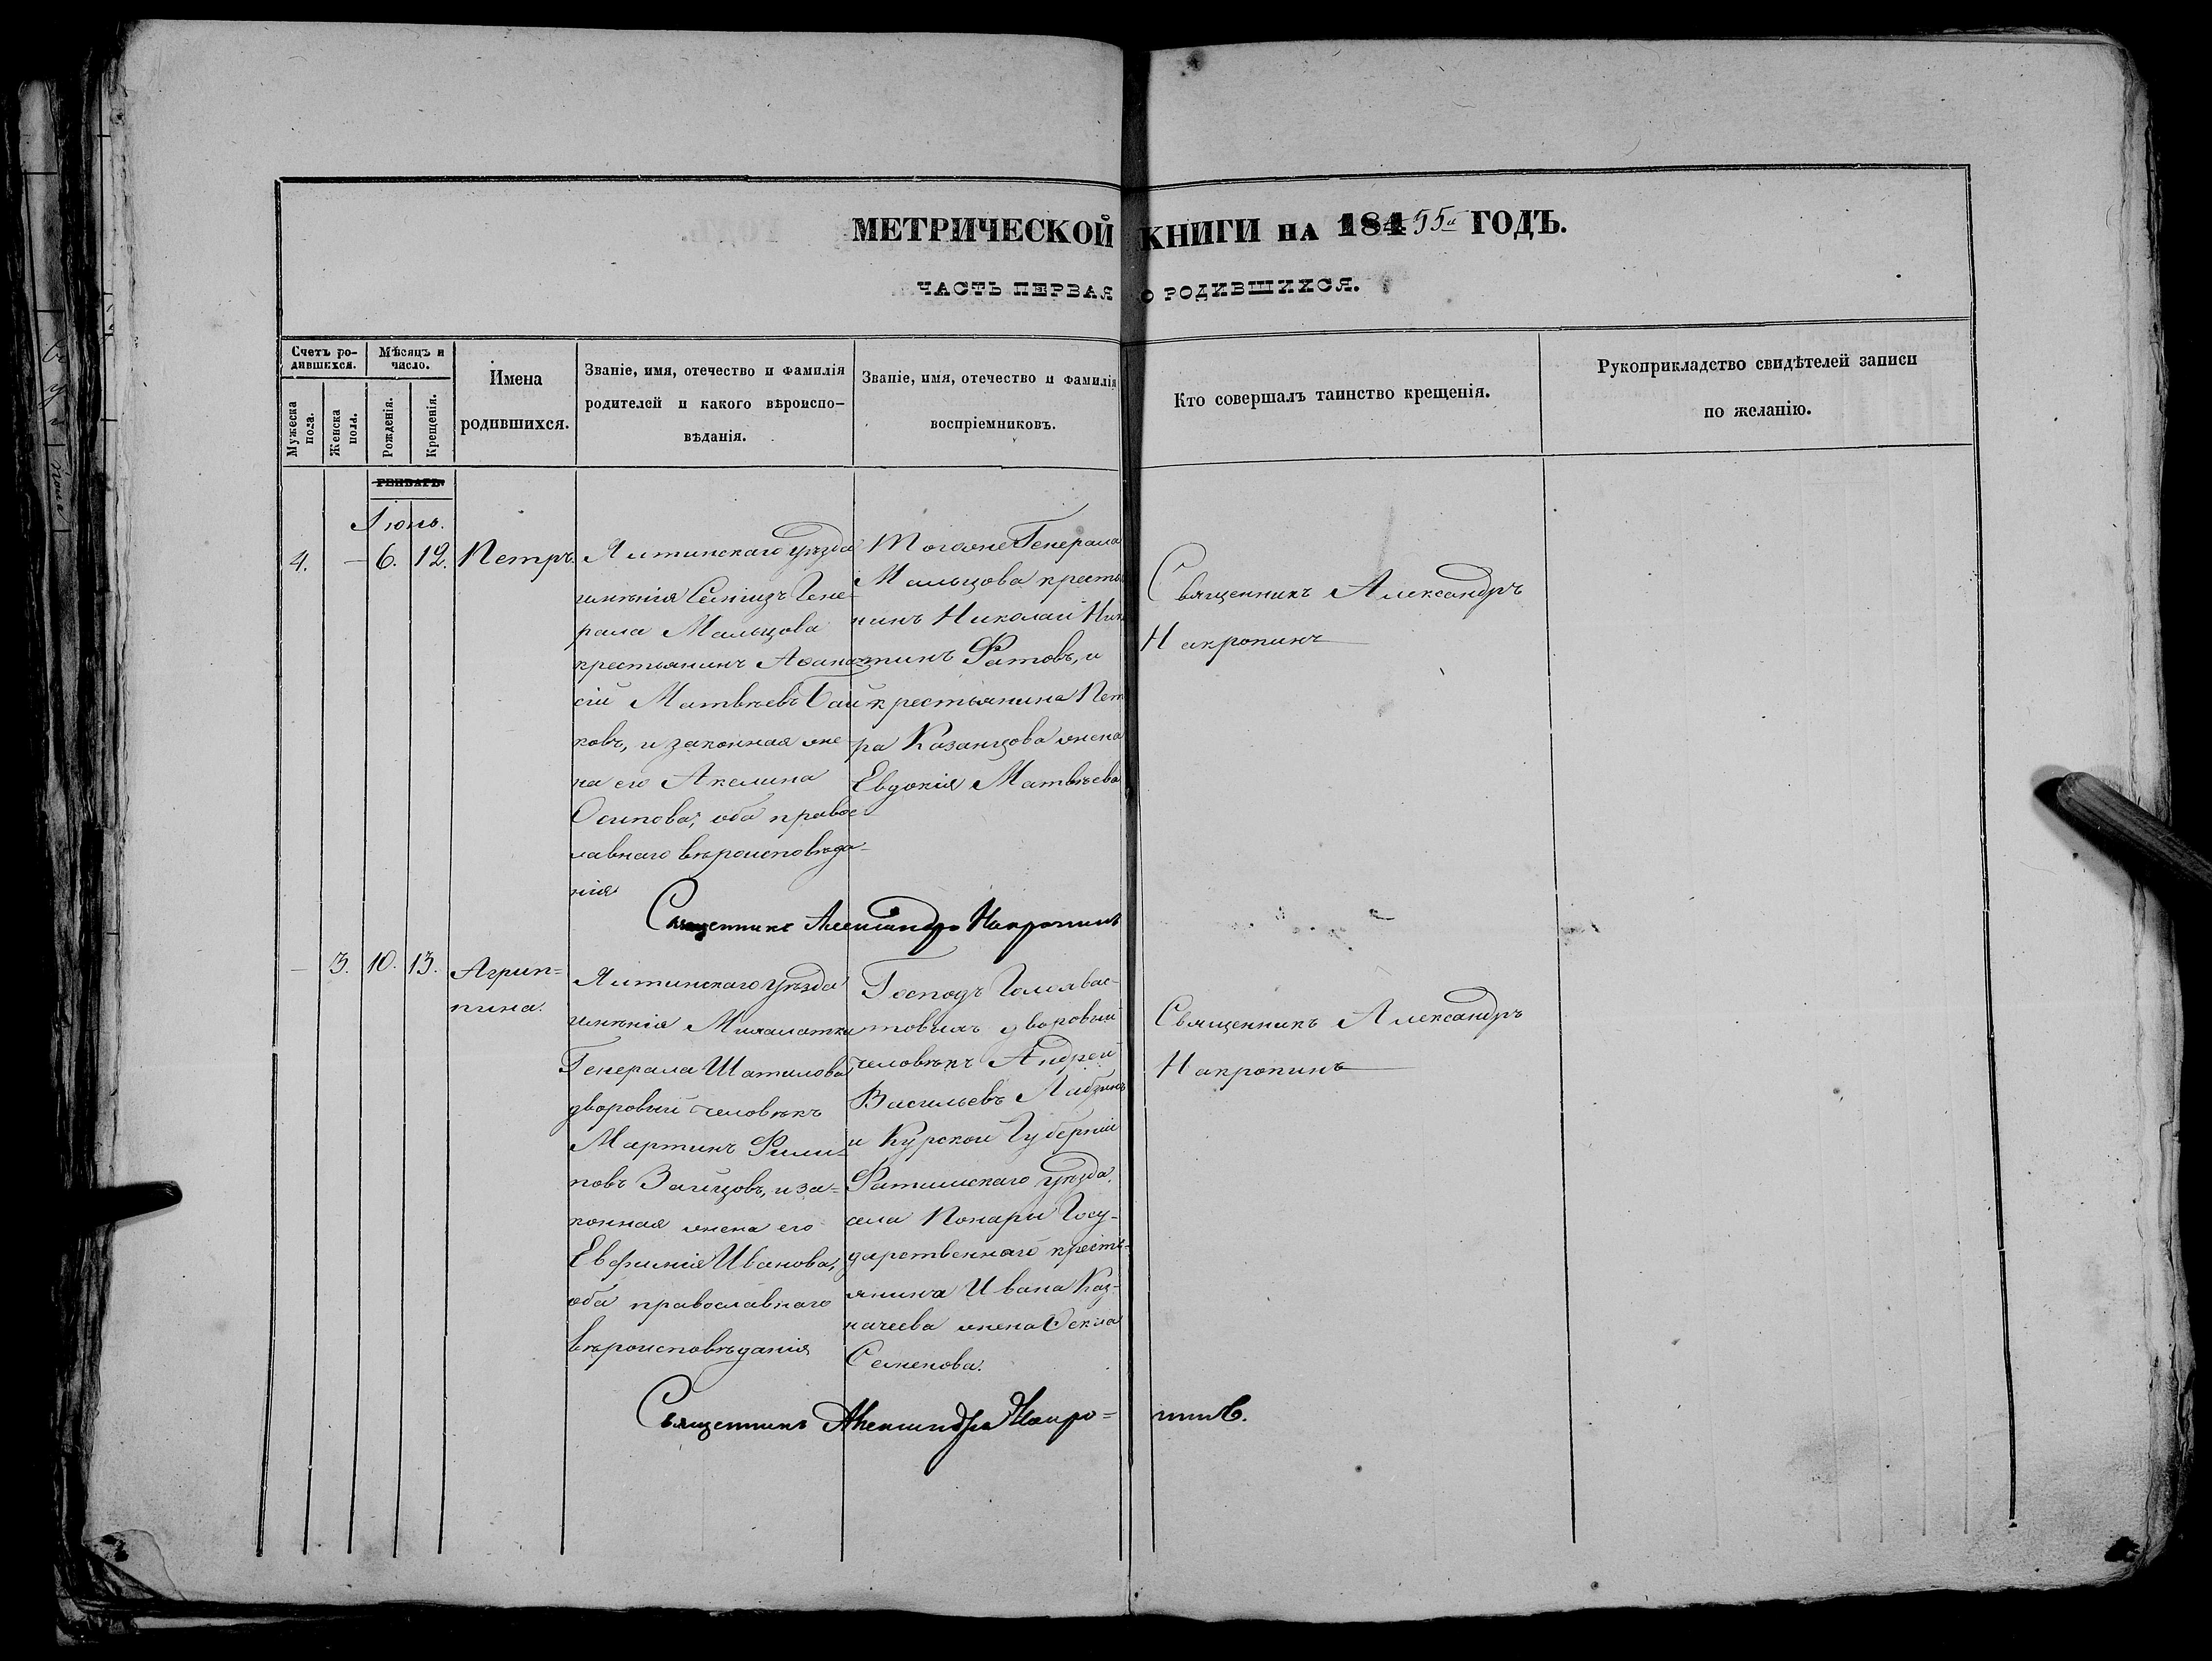 МЕТРИЧЕСКОЙ КНИГИ НА 18455го ГОДЪ.
ЧАСТЬ ПЕРВАЯ О РОДИВШИХСЯ.
Счетъ ро-
дившихся.
Мужеска
пола.
Женска
пола.
Мѣсяцъ и
число.
Рожденія.
Крещенія.
Имена
родившихся.
Званіе, имя, отечество и фамилія
родителей и какого вѣроиспо-
вѣданія.
Званіе, имя, отечество и фамилія
воспріемниковъ.
Кто совершалъ таинство крещенія.
Рукоприкладство свидѣтелей записи
по желанію.
ГЕНВАРЬ
Іюнь.
4. — 6. 12. Петръ.
Ялтинскаго уѣзда
имѣнія Симиизъ Гене-
рала Мальцова
крестьянинъ Аѳана-
сій Матвѣевъ
ковъ, и законная же-
на его Акелина
Осипова, оба правос-
лавнаго вѣроисповѣда-
нія
Тогоже Генерала
Мальцова кресть
нинъ Николай Ник
тинъ Фатовъ, и
крестьянина Пет
ра Казанцова жена
Евдокія Матвѣева
Священникъ Александръ
Накропинъ
Священникъ Александръ Накропинъ
— 3. 10. 13. Агрип=
пина.
Ялтинскаго уѣзда
имѣнія Мухалатки
Генерала Шатилова,
дворовый человѣкъ
Мартинъ Фили-
повъ Зайцовъ, и за-
конная жена его
Евфимія Иванова,
оба православнаго
вѣроисповѣданія
Господъ
товыхъ дворовый
человѣкъ Андрей
Васильевъ
и Курской Губерніи
Фатижскаго уѣзда,
села Понари Госу-
дарственнаго кресть-
янина Ивана Каз-
начеева жена Ѳекла
Семенова.
Священникъ Александръ
Накропинъ
Священникъ Александръ Накро= пинъ.